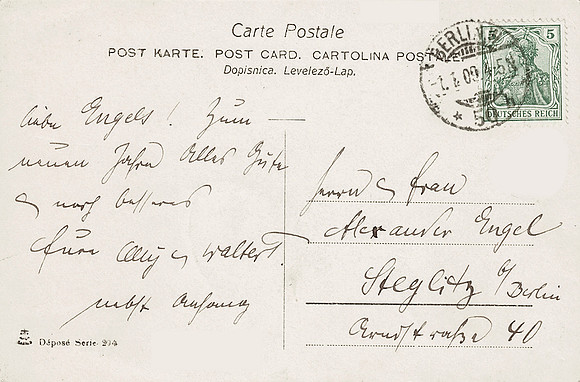 Carte Postale
POST KARTE. POST CARD. CARTOLINA POSTALE
Dopisnica. Levelező-Lap.
BERLIN
5
DEUTSCHES REICH
liebe Engels! Zum
neuen Jahre Alles Gute
noch besseres
Eure Olly u Walter.
nebst Anhang
Herrn u Frau
Alexander Engel
Steglitz b/Berlin
Arndtstraße 40
Déposé Serie 204